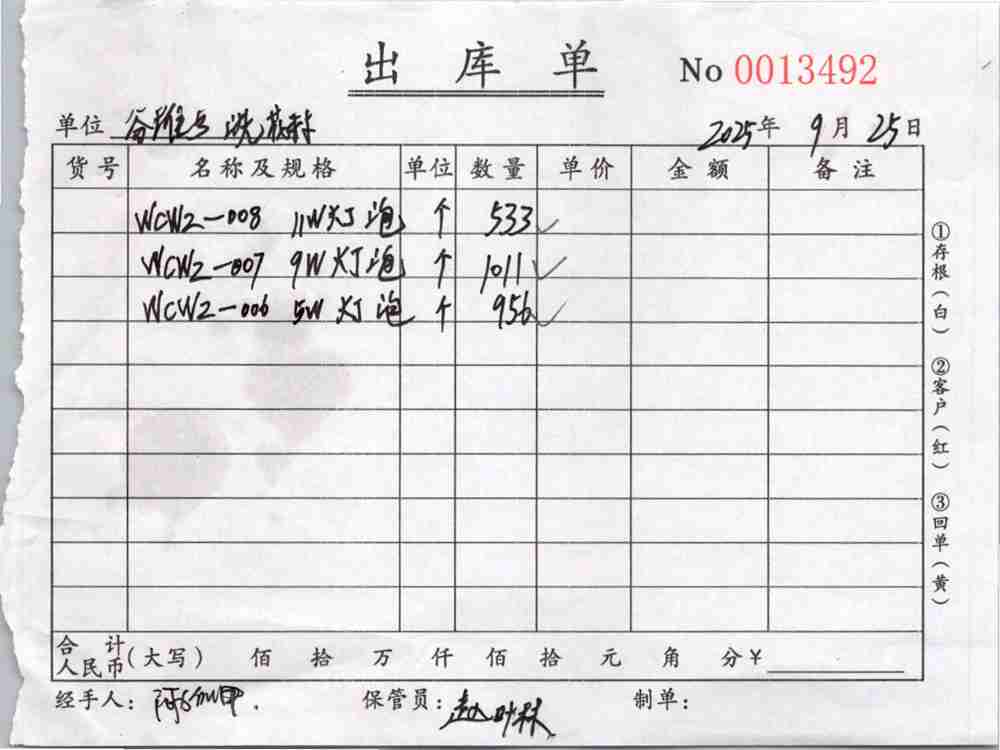 出库单 No 0013492
单位 2025年 9月 25日
货号 名称及规格 单位 数量 单价 金额 备注
WCW2-008 11W灯泡 个 533
WCW2-007 9W灯泡 个 1011
WCW2-006 5W灯泡 个 956
合计人民币(大写) 佰 拾 万 仟 佰 拾 元 角 分¥
经手人: 保管员: 制单:
①存根(白) ②客户(红) ③回单(黄)